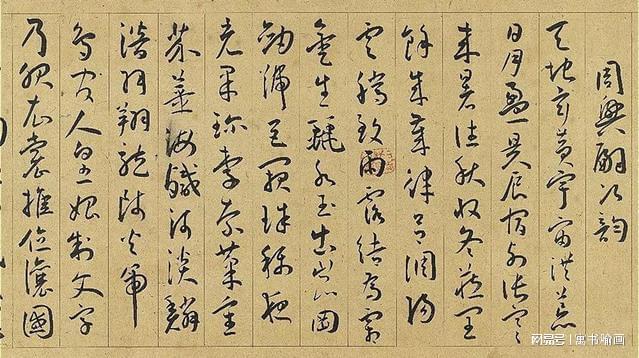 周興嗣次韻
天地玄黃宇宙洪荒
日月盈昃辰宿列張寒
來暑往秋收冬藏閏
餘成歲律呂調陽
雲騰致雨露結為霜
金生麗水玉出崑岡
劍號巨闕珠稱夜
光果珍李柰菜重
芥薑海鹹河淡鱗
潛羽翔龍師火帝
鳥官人皇始制文字
乃服衣裳推位讓國
网易号 | 寓书喻画